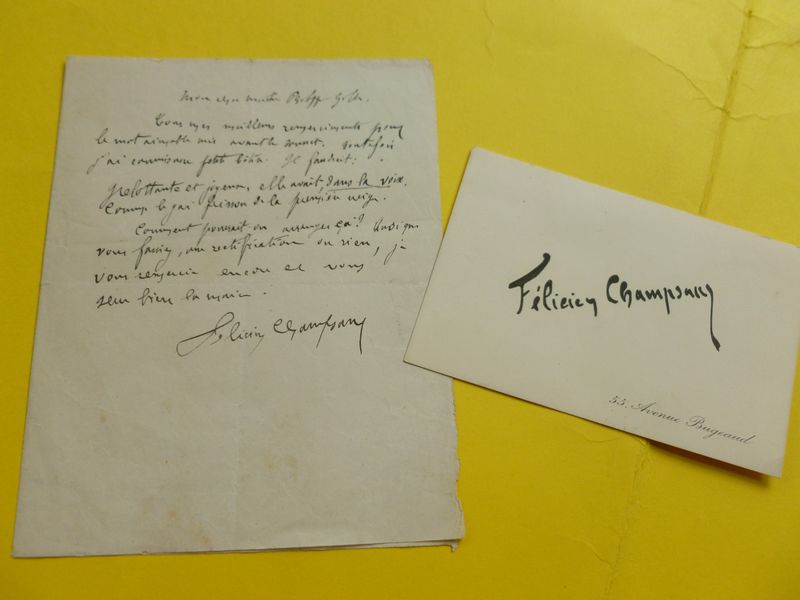 Mon cher maitre
Tous mes meilleurs remerciements pour
le mot aimable mis avant le sonnet. Toutefois
j'ai commis une Il faudrait :
Grelottante et joyeuse, elle avait, dans la voix,
Comme le gai frisson de la première neige.
Comment pourrait-on arranger ça ? Quoique
vous fassiez, une rectification ou rien, je
vous remercie encore et vous
serre bien la main.
Félicien Champsaur
Félicien Champsaur
55. Avenue Bugeaud